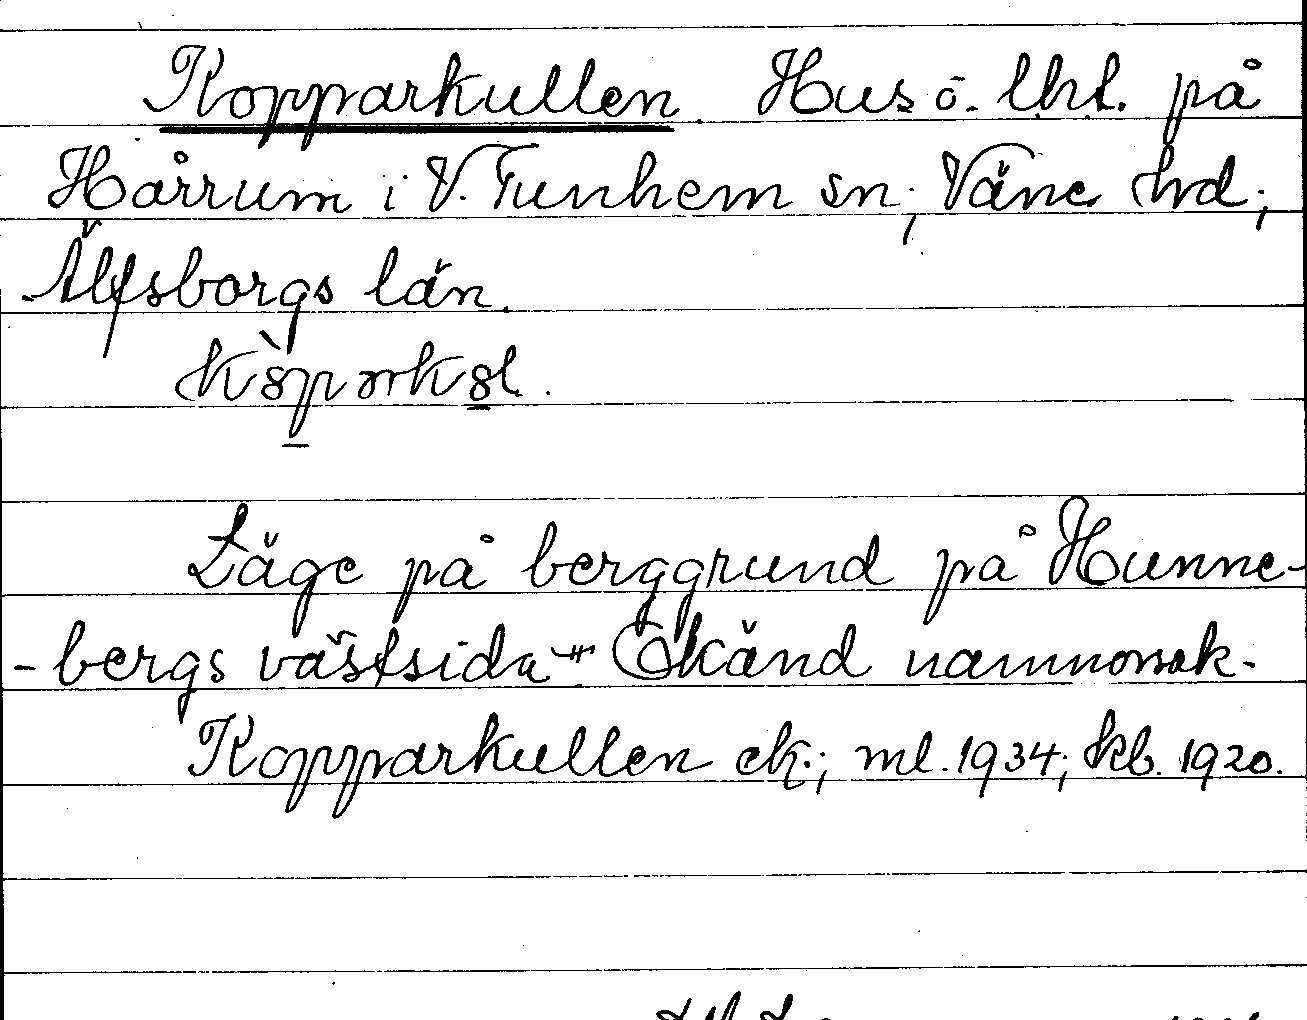 Kopparkullen. Hus o. lht. på
Hårrum i V. Tunhem sn; Väne hd;
Älfsborgs län.
Läge på berggrund på Hunne-
-bergs västsida - Okänd namnorsak.
Kopparkullen ek.; ml. 1934; kb. 1920.